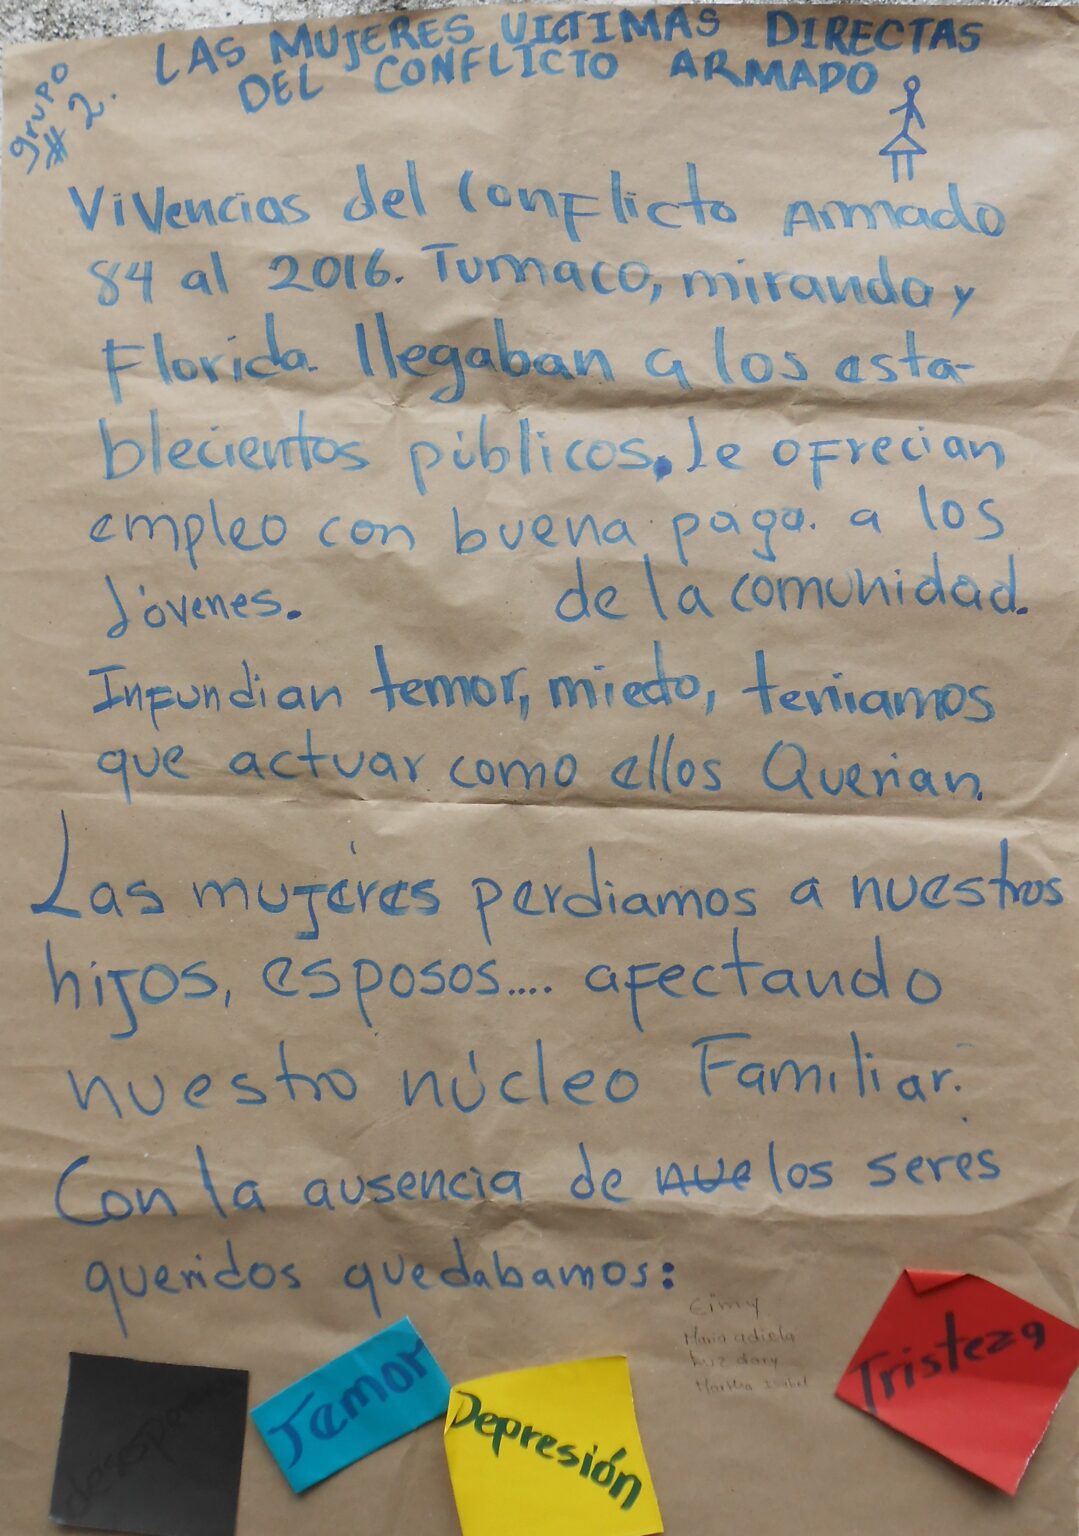 grupo
# 2.
LAS MUJERES VICTIMAS DIRECTAS
DEL CONFLICTO ARMADO
Vivencias del Conflicto Armado
84 al 2016. Tumaco, miranda y
Florida. llegaban a los esta-
blecientos públicos, le ofrecian
empleo con buena paga. a los
Jóvenes. de la comunidad.
Infundian temor, miedo, teniamos
que actuar como ellos Querian.
Las mujeres perdiamos a nuestros
hijos, esposos.... afectando
nuestro núcleo Familiar.
Con la ausencia de nue los seres
queridos quedabamos:
Eimy
Maria adiela
luz dary
Martha Isabel
Tristeza
Temor
Depresión